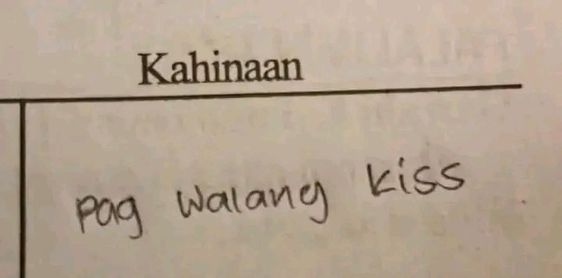 Kahinaan
pag walang kiss